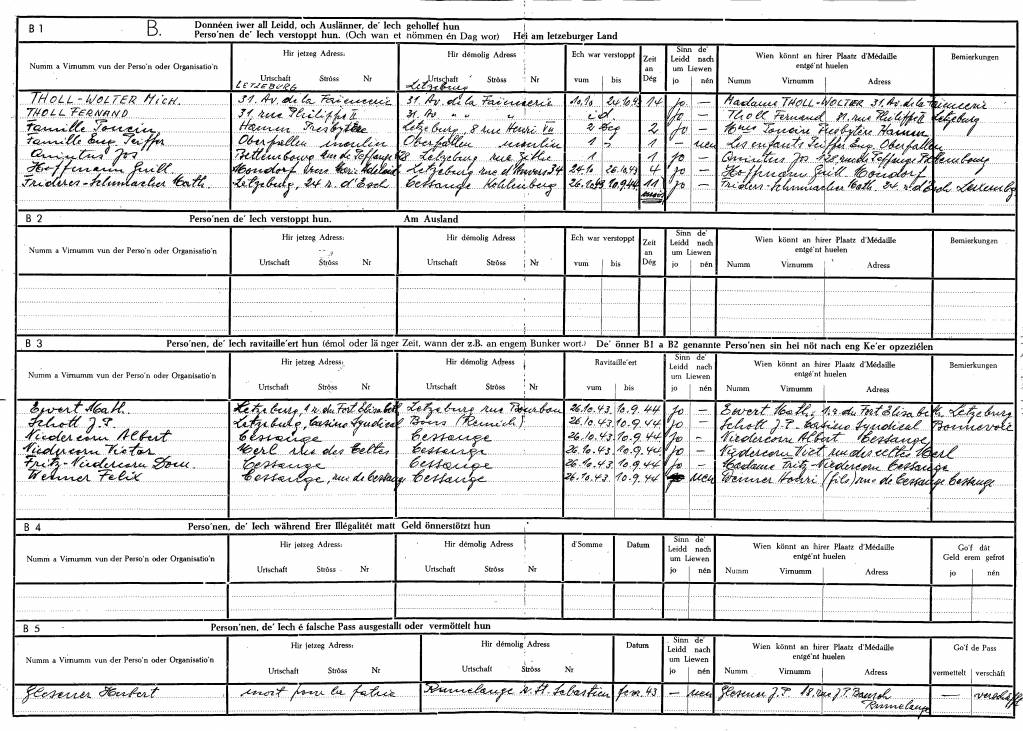 B 1 B. Donnéen iwer all Leidd, och Auslänner, de' Iech gehollef hun
Perso'nen de' Iech verstoppt hun. (Och wan et nömmen én Dag wor) Hei am letzeburger Land
Numm a Virnumm vun der Perso'n oder Organisatio'n Hir jetzeg Adress: Urtschaft Ströss Nr Hir démolig Adress Urtschaft Ströss Nr Ech war verstoppt vum bis Zeit an Dég Sinn de' Leidd nach um Liewen jo nén Wien könnt an hirer Plaatz d'Médaille entgé'nt huelen Numm Virnumm Adress Bemierkungen
LETZEBURG Letzeburg
THOLL-WOLTER Mich. 31. Av. de la Faiencerie 31. Av. de la Faiencerie 10.10 24.10.43 14 jo — Madame THOLL-WOLTER 31. Av. de la Faiencerie
THOLL FERNAND 31, rue Philippe II 31. Av " " " id jo — Tholl Fernand 31. rue Philippe II Letzeburg
Famille Toncin Hamm Presbytère Letzeburg, 8 rue Henri VII 2 Deg 2 jo — Toncin Presbytère Hamm
Famille Eug. Peiffer Oberfallen moulin Oberfallen moulin 1 1 — nen Les enfants Peiffer Eug. Oberfallen
Amintus Jos Bettembourg rue de Peppange 28 Letzeburg rue Zithe 1 1 jo — Amintus Jos. 28, rue de Peppange Bettembourg
Hoffmann Guill. Mondorf Letzeburg rue d'Anvers 34 24.10 26.10.43 4 jo — Hoffmann Guill Mondorf
Frideres-Schumacher Math. Letzeburg, 24 r. d'Esch Cessange Kohlenberg 26.10.43 10.9.44 11 mois jo — Frideres-Schumacher Math. 24. r. d'Esch Luxembg
B 2 Perso'nen de' Iech verstoppt hun. Am Ausland
Numm a Virnumm vun der Perso'n oder Organisatio'n Hir jetzeg Adress: Urtschaft Ströss Nr Hir démolig Adress Urtschaft Ströss Nr Ech war verstoppt vum bis Zeit an Dég Sinn de' Leidd nach um Liewen jo nén Wien könnt an hirer Plaatz d'Médaille entgé'nt huelen Numm Virnumm Adress Bemierkungen
B 3 Perso'nen, de' Iech ravitaille'ert hun (émol oder lä nger Zeit, wann der z.B. an engem Bunker wort.) De' önner B1 a B2 genannte Perso'nen sin hei nöt nach eng Ke'er opzeziélen
Numm a Virnumm vun der Perso'n oder Organisatio'n Hir jetzeg Adress: Urtschaft Ströss Nr Hir démolig Adress Urtschaft Ströss Nr Ravitaille'ert vum bis Sinn de' Leidd nach um Liewen jo nén Wien könnt an hirer Plaatz d'Médaille entgé'nt huelen Numm Virnumm Adress Bemierkungen
Ewert Math. Letzeburg, 1 r. du Fort Elisabeth Letzeburg rue Bourbon 26.10.43 10.9.44 jo — Ewert Math, 1. r. du Fort Elisabeth. Letzeburg
Schott J.P. Letzeburg, Casino Syndical Bous (Remich) 26.10.43 10.9.44 jo — Schott J.P. Casino Syndical Bonnevoie
Niedercorn Albert Cessange Cessange 26.10.43 10.9.44 jo - Niedercorn Albert Cessange
Niedercorn Victor Merl rue des Celtes Cessange 26.10.43 10.9.44 jo — Niedercorn Vict rue des celtes Merl
Fritz-Niedercorn Dom. Cessange Cessange 26.10.43 10.9.44 jo — Madame Fritz-Niedercorn Cessange
Wenner Felix Cessange, rue de Cessange Cessange 26.10.43 10.9.44 nen Wenner Henri (fils) rue de Cessange Cessange
B 4 Perso'nen, de' Iech während Erer Illégalitét matt Geld önnerstötzt hun
Numm a Virnumm vun der Perso'n oder Organisatio'n Hir jetzeg Adress: Urtschaft Ströss Nr Hir démolig Adress Urtschaft Ströss Nr d'Somme Datum Sinn de' Leidd nach um Liewen jo nén Wien könnt an hirer Plaatz d'Médaille entgé'nt huelen Numm Virnumm Adress Go'f dât Geld erem gefrot jo nén
B 5 Person'nen, de' Iech é falsche Pass ausgestallt oder vermöttelt hun
Numm a Virnumm vun der Perso'n oder Organisatio'n Hir jetzeg Adress: Urtschaft Ströss Nr Hir démolig Adress Urtschaft Ströss Nr Datum Sinn de' Leidd nach um Liewen jo nén Wien könnt an hirer Plaatz d'Médaille entgé'nt huelen Numm Virnumm Adress Go'f de Pass vermettelt verschäft
Glesener Hubert mort pour la patrie Rumelange r. St. Sebastien 43 — nen Glesener J.P. 18, rue J.P. Bausch Rumelange — verschäft